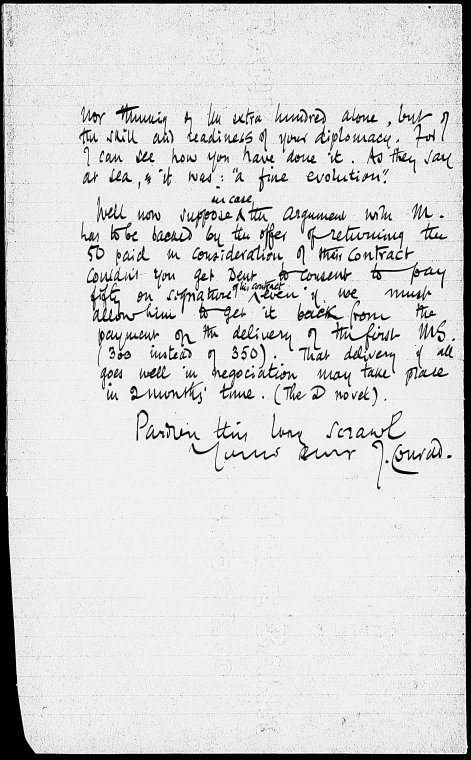 not thinking of the extra hundred alone, but of
the skill and readiness of your diplomacy. For
I can see how you have done it. As they say
at sea, it was: "a fine evolution".
in case
Well now suppose the argument with M.
has to be backed by the offer of returning the
50 paid in consideration of their contract
couldn't you get Dent to consent to pay
of his contract
fifty on signature even if we must
allow him to get it back from the
payment on the delivery of the first MS.
(300 instead of 350). That delivery if all
goes well in negociation may take place
in 2 months' time. (The D novel).
Pardon this long scrawl
Yours ever J. Conrad.